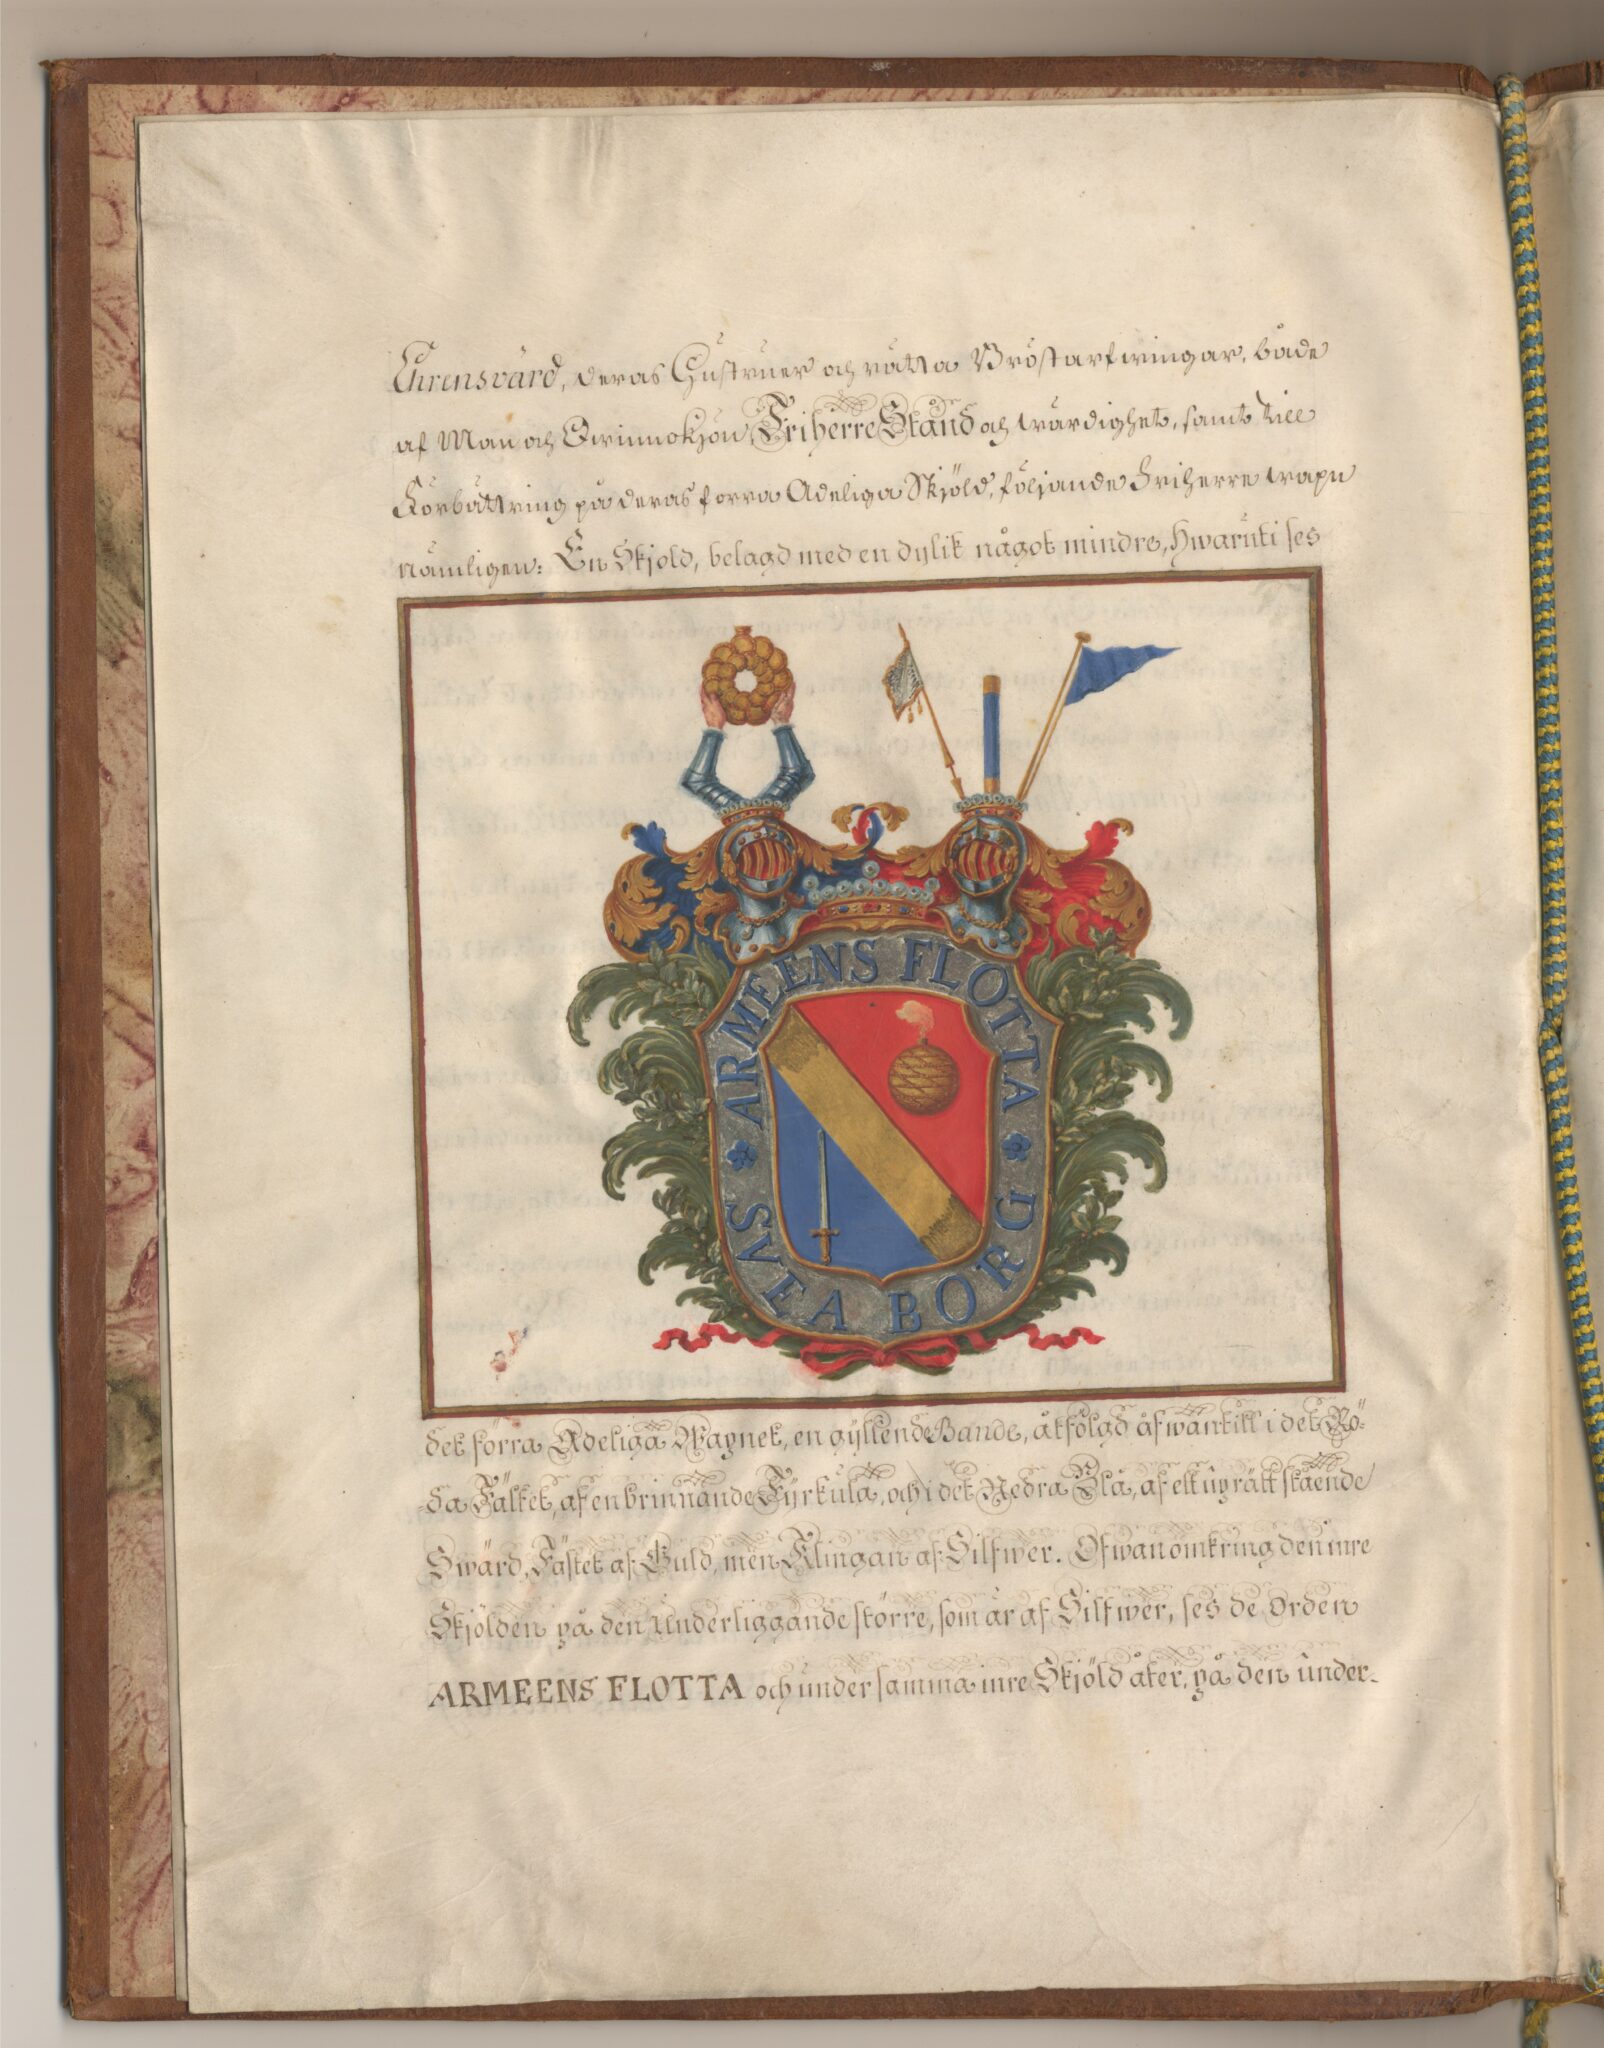 Ehrensvärd, deras Gustruer och rätta Bröstarfwingar, både
af Man och Qwinnokjön Friherre Stånd och wärdighet, samt till
Förbättring på deras forra Adeliga Skjöld, följande Friherre wapn
nämligen: En Skjöld, belagd med en dylik något mindre, hwaruti ses
ARMEENS FLOTTA
SVEABORG
det förra Adeliga Wapnet, en gyllende Bande, åtfölgd åfwantill i det Rö-
da Fältet, af en brinnande Fyrkula, och i det Nedra Blå, af ett upprätt stående
Swärd, Fästet af Guld, men Klingan af Silfwer. Ofwanomkring den inre
Skjölden på den Underliggande större, som är af Silfwer, ses de Orden
ARMEENS FLOTTA och under samma inre Skjöld åter, på den under-